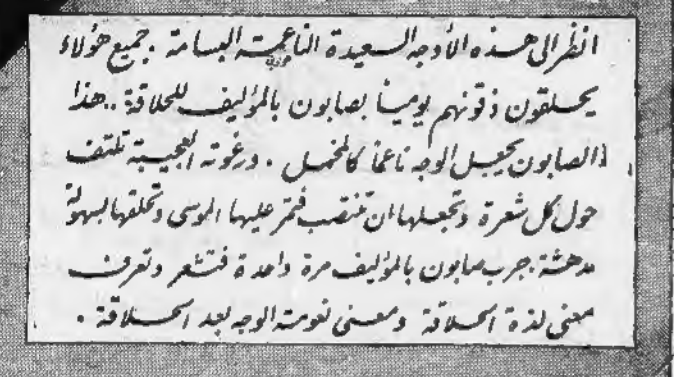 انظر الى هذه الأوجه السعيدة الناعمة البسامة . جميع هؤلاء
يحلقون ذقونهم يومياً بصابون بالمؤليف للحلاقة .. هذا
الصابون يجعل الوجه ناعماً كالمخمل . ورغوته العجيبة تلتف
حول كل شعرة وتجعلها ان تنتصب فتمر عليها الموسى وتحلقها بسهولة
مدهشة . جرب صابون بالمؤليف مرة واحدة فتشعر وتعرف
معنى لذة الحلاقة ومعنى نعومة الوجه بعد الحلاقة .